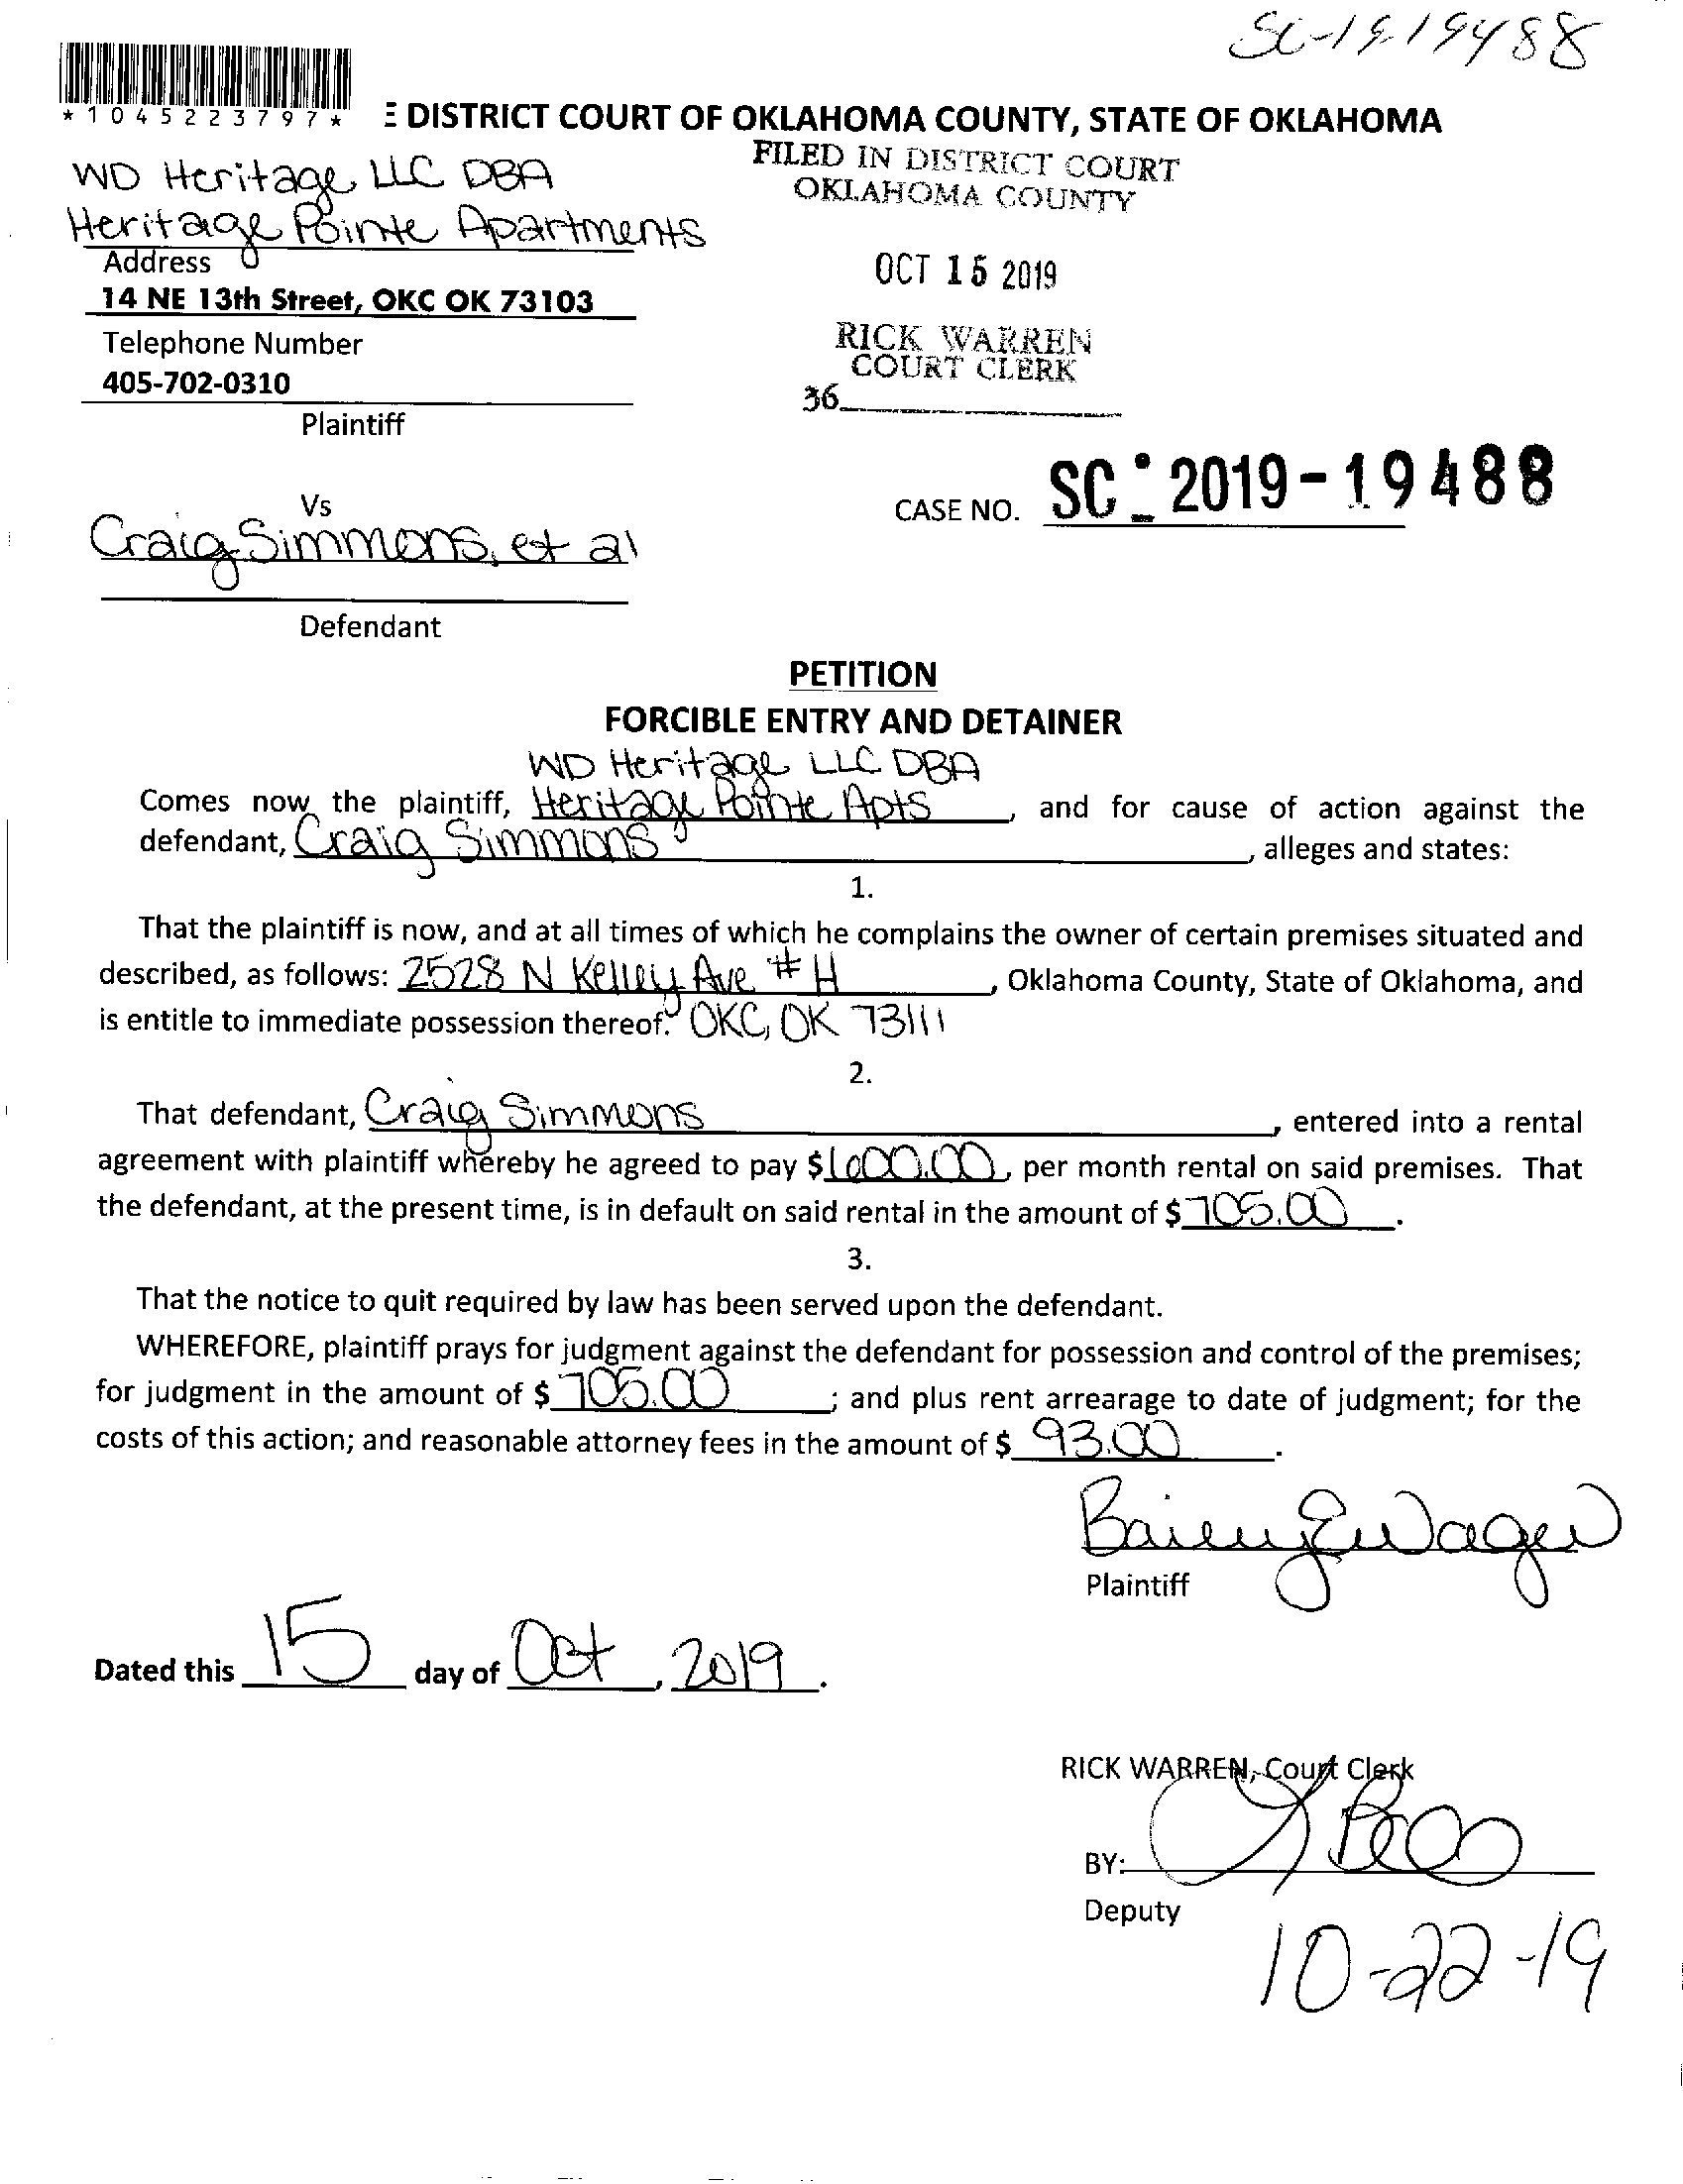 SC-19-19488
*1045223797*
E DISTRICT COURT OF OKLAHOMA COUNTY, STATE OF OKLAHOMA
FILED IN DISTRICT COURT
OKLAHOMA COUNTY
WD Heritage LLC DBA
Heritage Pointe Apartments
Address
14 NE 13th Street, OKC OK 73103
Telephone Number
405-702-0310
Plaintiff
OCT 15 2019
RICK WARREN
COURT CLERK
36
CASE NO. SC - 2019-19488
Vs
Craig Simmons, et al
Defendant
PETITION
FORCIBLE ENTRY AND DETAINER
WD Heritage LLC DBA
Comes now the plaintiff, Heritage Pointe Apts, and for cause of action against the
defendant, Craig Simmons, alleges and states:
1.
That the plaintiff is now, and at all times of which he complains the owner of certain premises situated and
described, as follows: 2528 N Kelley Ave # H, Oklahoma County, State of Oklahoma, and
is entitle to immediate possession thereof. OKC, OK 73111
2.
That defendant, Craig Simmons, entered into a rental
agreement with plaintiff whereby he agreed to pay $600.00, per month rental on said premises. That
the defendant, at the present time, is in default on said rental in the amount of $705.00.
3.
That the notice to quit required by law has been served upon the defendant.
WHEREFORE, plaintiff prays for judgment against the defendant for possession and control of the premises;
for judgment in the amount of $705.00; and plus rent arrearage to date of judgment; for the
costs of this action; and reasonable attorney fees in the amount of $ 93.00.
Plaintiff
Dated this 15 day of Oct, 2019.
RICK WARREN, Court Clerk
BY:
Deputy
10-22-19